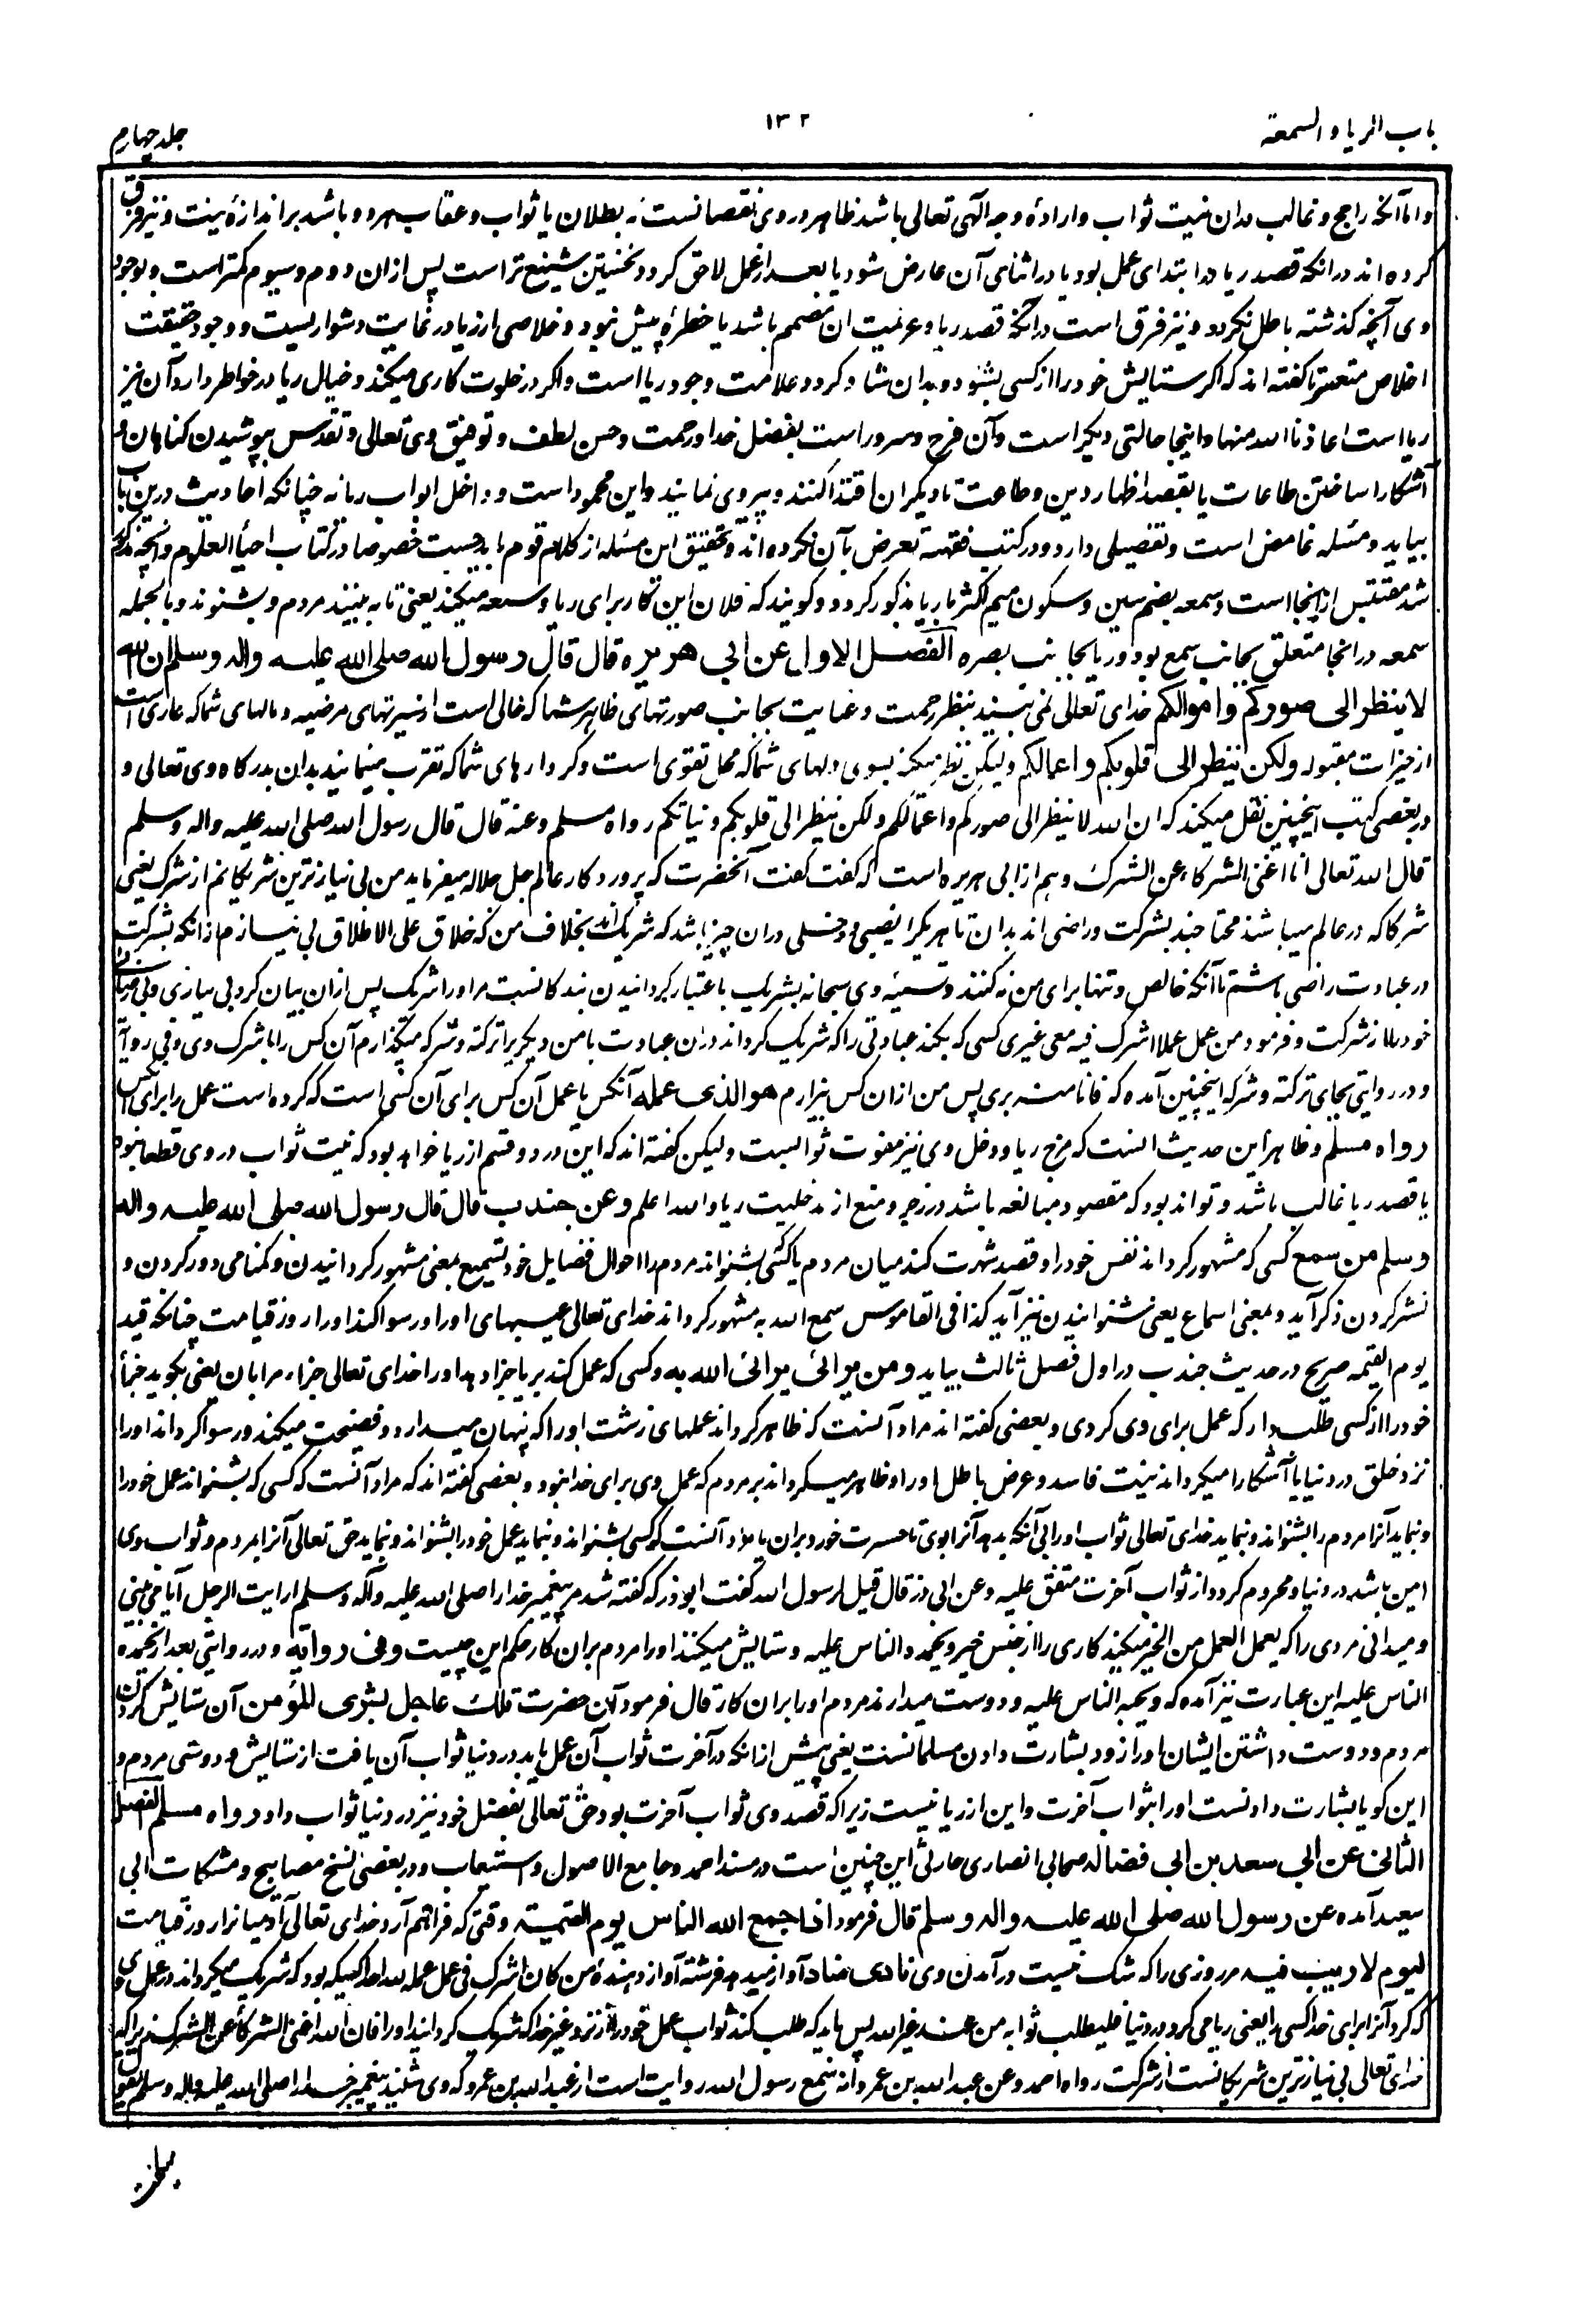 باب الریا و السمعة
۱۳۲
جلد چهارم
و اما آنکه راجح و غالب دران نیت ثواب و ارادۀ وجه الٓهی تعالی باشد ظاهر در وی نقصانست نه بطلان یا ثواب و عقاب هر دو باشد بر اندازۀ نیت و نیز فرق
کرده اند در انکه قصد ریا در ابتدای عمل بود یا در اثنای آن عارض شود یا بعد از عمل لاحق کردد نخستین شنیع تر است پس ازان دوم و سیوم کمتر است و بوجود
وی آنچه کذشته باطل نکردد و نیز فرق است در انکه قصد ریا و عزیمت ان مصمم باشد یا خطرۀ بیش نبود و خلاصی از ریا در غایت دشواریست و وجود حقیقت
اخلاص متعسر تا کفته اند که اکر ستایش خود را از کسی بشنود و بدان شاد کردد علامت وجود ریا است و اکر در خلوت کاری میکند و خیال ریا در خواطر دارد آن نیز
ریا است اعاذنا الله منها و اینجا حالتی دیکر است و آن فرح و سرور است بفضل خدا و رحمت و حسن لطف و توفیق وی تعالی و تقدس بپوشیدن کناهان و
آشکارا ساختن طاعات یا بقصد اظهار دین و طاعت تا دیکران اقتدا کنند و پیروی نمایند و این محمود است و داخل ابواب ریا نه چنانکه احادیث درین باب
بیاید و مسئله غامض است و تفصیلی دارد و در کتب فقهیه تعرض بآن نکرده اند و تحقیق این مسئله از کلام قوم باید جست خصوصا در کتاب احیاء العلوم و آنچه مذکور
شد مقتبس از اینجا است و سمعه بضم سین و سکون میم اکثر با ریا مذکور کردد و کویند که فلان این کار برای ریا و سمعه میکند یعنی تا به بینند مردم و بشنوند و بالجمله
سمعه در انجا متعلق بجانب سمع بود و ریا بجانب بصره الفصل الاول عن ابی هریره قال قال رسول الله صلی الله علیه واله وسلم ان الله
لا ینظر الی صورکم و اموالکم خدای تعالی نمی بیند بنظر رحمت و عنایت بجانب صورتهای ظاهر شما که خالی است از سیرتهای مرضیه و مالهای شما که عاری است
از خیرات مقبوله ولکن ینظر الی قلوبکم و اعمالکم ولیکن نظر میکند بسوی دلهای شما که محل تقوی است و کردارهای شما که تقرب مینمایند بدان بدرکاه وی تعالی و
در بعضی کتب اینچنین نقل میکند که ان الله لا ینظر الی صورکم و اعمالکم ولکن ینظر الی قلوبکم و نیاتکم رواه مسلم وعنه قال قال رسول الله صلی الله علیه واله وسلم
قال الله تعالی انا اغنی الشرکاء عن الشرک و هم از ابی هریره است که کفت کفت آنحضرت که پروردکار عالم جل جلاله میفرماید من بی نیاز ترین شریکانم از شرک یعنی
شرکا که در عالم میباشند محتاجند بشرکت و راضی اند بدان تا هر یکرا نصیبی و دخلی دران چیز باشد که شریک اند بخلاف من که خلاق علی الاطلاق بی نیازم از آنکه بشرکت
در عبادت راضی باشم تا آنکه خالص و تنها برای من نه کنند و تسمیۀ وی سبحانه بشریک باعتبار کردانیدن بندکانست مر او را شریک پس ازان بیان کرد بی نیازی و بی رضائی
خود را از شرکت و فرمود من عمل عملا اشرک فیه معی غیری کسی که بکند عبادتی را که شریک کرداند دران عبادت با من دیکریرا ترکته و شرکه میکذارم آن کس را با شرک وی وفی روایة
و در روایتی بجای ترکته و شرکه اینچنین آمده که فانا منه بری پس من ازان کس بیزارم هو الذی عمله آنکس یا عمل آن کس برای آن کسی است که کرده است عمل را برای آنکس
رواه مسلم و ظاهر این حدیث انست که مزج ریا و دخل وی نیز مفوت ثوابست ولیکن کفته اند که این در دو قسم از ریا خواهد بود که نیت ثواب در وی قطعا نبود
یا قصد ریا غالب باشد و تواند بود که مقصود مبالغه باشد در زجر و منع از مدخلیت ریا والله اعلم وعن جندب قال قال رسول الله صلی الله علیه واله
وسلم من سمع کسی که مشهور کرداند نفس خود را و قصد شهرت کند میان مردم یا کسی بشنواند مردم را احوال فضایل خود تسمیع بمعنی مشهور کردانیدن و کمنامی دور کردن و
نشر کردن ذکر آید و بمعنی اسماع یعنی شنوانیدن نیز آید کذا فی القاموس سمع الله به مشهور کرداند خدای تعالی عیبهای او را و رسوا کند او را روز قیامت چنانکه قید
یوم القیمه صریح در حدیث جندب در اول فصل ثالث بیاید و من یرائی یرائی الله به و کسی که عمل کند بریا جزا دهد او را خدای تعالی جزاء مرایان یعنی بکوید جزاء
خود را از کسی طلب دار که عمل برای وی کردی و بعضی کفته اند مراد آنست که ظاهر کرداند عملهای زشت او را که پنهان میدارد و فضیحت میکند و رسوا کرداند او را
نزد خلق در دنیا یا آشکارا میکرداند نیت فاسد و غرض باطل او را و ظاهر میکرداند بر مردم که عمل وی برای خدا نبود و بعضی کفته اند که مراد آنست که کسی که بشنواند عمل خود را
و بنماید آنرا مردم را بشنواند و بنماید خدای تعالی ثواب او را بی آنکه بدهد آنرا بوی تا حسرت خورد بران یا مراد آنست که کسی بشنواند و بنماید عمل خود را بشنواند و بنماید حق تعالی آنرا بمردم و ثواب وی
این باشد در دنیا و محروم کردد از ثواب آخرت متفق علیه وعن ابی ذر قال قیل لرسول الله کفت ابوذر که کفته شد مر پیغمبر خدا را صلی الله علیه وآله وسلم ارایت الرجل آیا می بینی
و میدانی مردی را که یعمل العمل من الخیر میکند کاری را از جنس خیر ویحمده الناس علیه و ستایش میکنند او را مردم بران کار حکم این چیست وفی روایة و در روایتی بعد از یحمده
الناس علیه این عبارت نیز آمده که ویحبه الناس علیه و دوست میدارند مردم او را بران کار قال فرمود آن حضرت تلک عاجل بشری المؤمن آن ستایش کردن
مردم و دوست داشتن ایشان او را زود بشارت دادن مسلمانست یعنی پیش ازانکه در آخرت ثواب آن عمل یابد در دنیا ثواب آن یافت از ستایش و دوستی مردم و
این کویا بشارت دادنست او را بثواب آخرت و این از ریا نیست زیرا که قصد وی ثواب آخرت بود حق تعالی بفضل خود نیز در دنیا ثواب داد رواه مسلم الفصل
الثانی عن ابی سعد بن ابی فضاله صحابی انصاری حارثی این چنین است در مسند احمد و جامع الاصول و استیعاب و در بعضی نسخ مصابیح و مشکات ابی
سعید آمده عن رسول الله صلی الله علیه واله وسلم قال فرمود اذا جمع الله الناس یوم القیمة وقتی که فراهم آرد خدای تعالی آدمیانرا روز قیامت
لیوم لا ریب فیه مر روزی را که شک نیست در آمدن وی نادی مناد آواز میدهد فرشته آواز دهندۀ من کان اشرک فی عمل عمله لله احدا کسیکه بود که شریک میکرداند در عمل وی
که کرد آنرا برای خدا کسی را یعنی ریا می کرد در دنیا فلیطلب ثوابه من عند غیر الله پس باید که طلب کند ثواب عمل خود را از نزد غیر خدا که شریک کردانید او را فان الله اغنی الشرکاء عن الشرک زیرا که
خدای تعالی بی نیاز ترین شریکانست از شرکت رواه احمد وعن عبد الله بن عمرو انه سمع رسول الله روایت است از عبد الله بن عمرو که وی شنید پیغمبر خدا را صلی الله علیه واله وسلم یقول